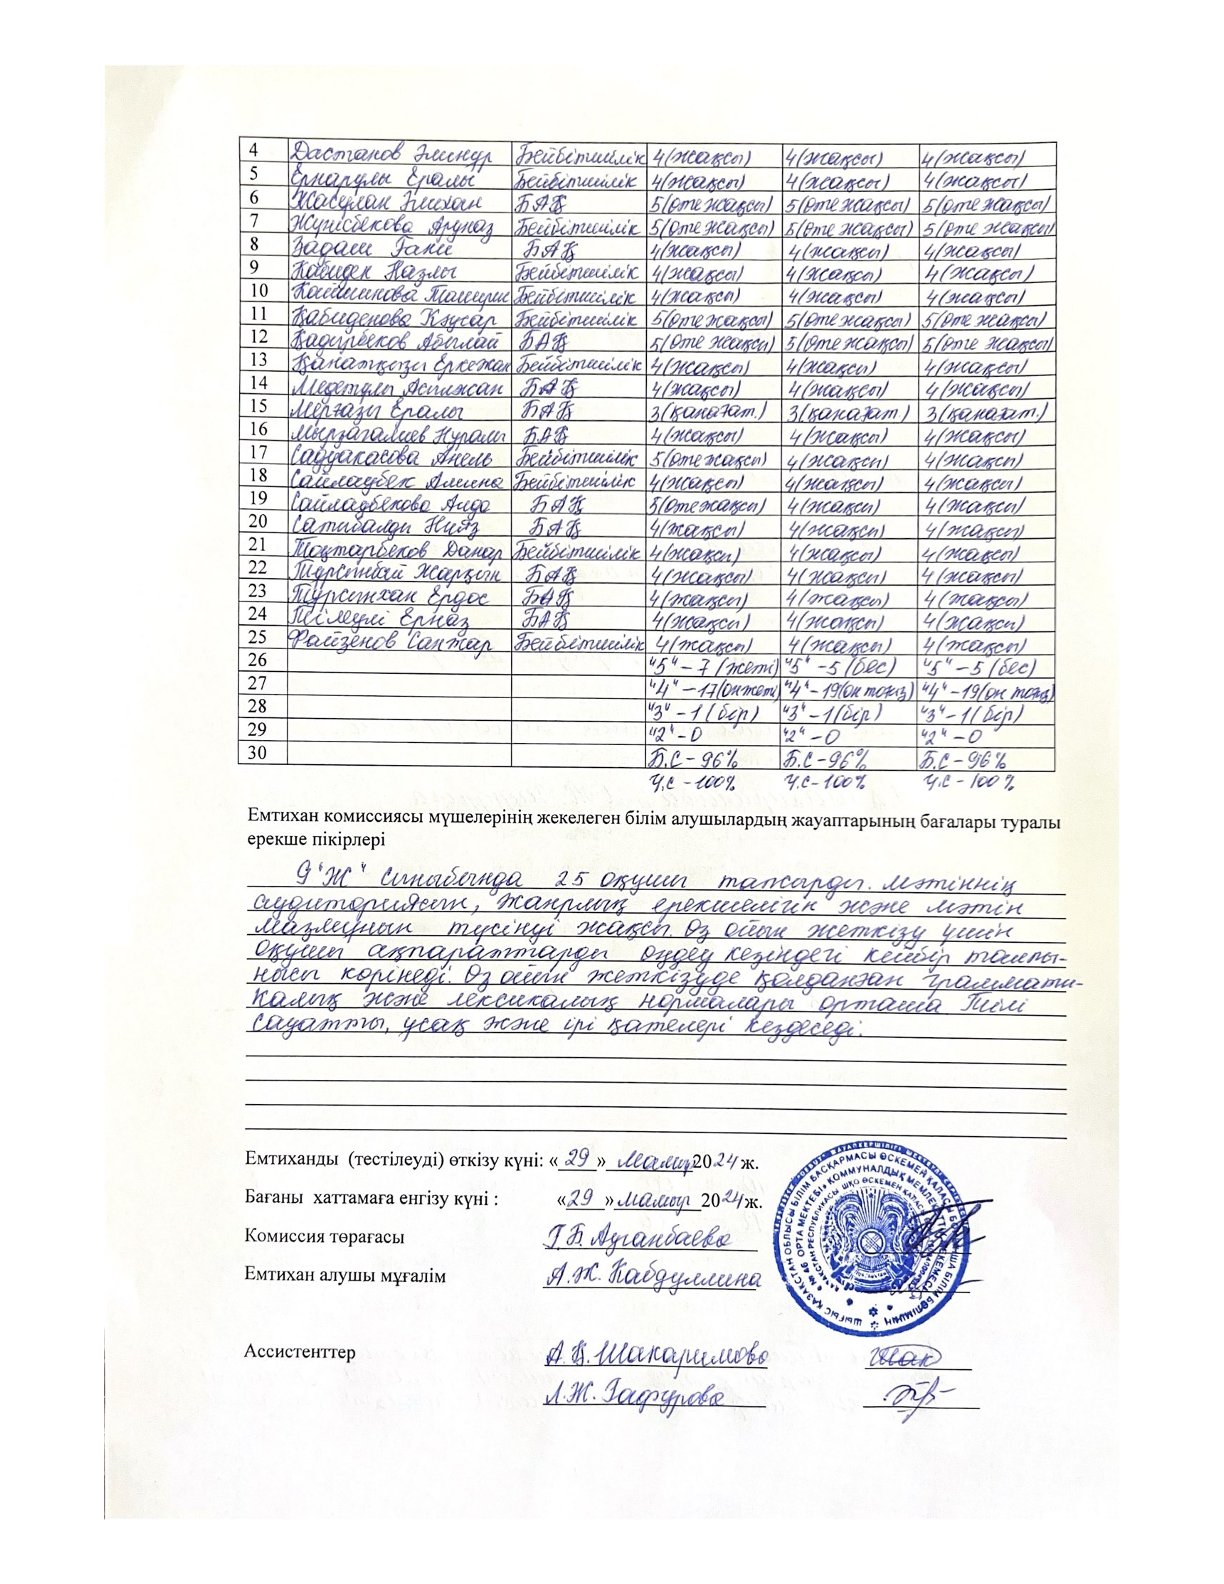 4 Дастанов Элинур Бейбітшілік 4(жақсы) 4(жақсы) 4(жақсы)
5 Ернарұлы Ералы Бейбітшілік 4(жақсы) 4(жақсы) 4(жақсы)
6 Жасұлан БАҚ 5(өте жақсы) 5(өте жақсы) 5(өте жақсы)
7 Жүнісбекова Аружаз Бейбітшілік 5(өте жақсы) 5(өте жақсы) 5(өте жақсы)
8 Ғани БАҚ 4(жақсы) 4(жақсы) 4(жақсы)
9 Кабиден Назлы Бейбітшілік 4(жақсы) 4(жақсы) 4(жақсы)
10 Бейбітшілік 4(жақсы) 4(жақсы) 4(жақсы)
11 Қабиденова Кәусар Бейбітшілік 5(өте жақсы) 5(өте жақсы) 5(өте жақсы)
12 Қадырбеков Абылай БАҚ 5(өте жақсы) 5(өте жақсы) 5(өте жақсы)
13 Қанатқызы Еркежан Бейбітшілік 4(жақсы) 4(жақсы) 4(жақсы)
14 Медетұлы Асылжан БАҚ 4(жақсы) 4(жақсы) 4(жақсы)
15 Мерғазы Ералы БАҚ 3(қанағат.) 3(қанағат.) 3(қанағат.)
16 Мырзагалиев Нұралы БАҚ 4(жақсы) 4(жақсы) 4(жақсы)
17 Садуакасова Анель Бейбітшілік 5(өте жақсы) 4(жақсы) 4(жақсы)
18 Сайлаубек Алина Бейбітшілік 4(жақсы) 4(жақсы) 4(жақсы)
19 Сайлаубекова Аида БАҚ 5(өте жақсы) 4(жақсы) 4(жақсы)
20 Сатибалди Нияз БАҚ 4(жақсы) 4(жақсы) 4(жақсы)
21 Тоқтарбеков Данар Бейбітшілік 4(жақсы) 4(жақсы) 4(жақсы)
22 Тұрсынбай Жарқын БАҚ 4(жақсы) 4(жақсы) 4(жақсы)
23 Тұрсынхан Ердос БАҚ 4(жақсы) 4(жақсы) 4(жақсы)
24 Ерназ БАҚ 4(жақсы) 4(жақсы) 4(жақсы)
25 Файзенов Санжар Бейбітшілік 4(жақсы) 4(жақсы) 4(жақсы)
26 "5" – 7 (жеті) "5" – 5 (бес) "5" – 5 (бес)
27 "4" – 17(он жеті) "4" – 19(он тоғыз) "4" – 19(он тоғыз)
28 "3" – 1 (бір) "3" – 1 (бір) "3" – 1 (бір)
29 "2" – 0 "2" – 0 "2" – 0
30 Б.С – 96% Б.С – 96% Б.С – 96%
Ү.С – 100% Ү.С – 100% Ү.С – 100%
Емтихан комиссиясы мүшелерінің жекелеген білім алушылардың жауаптарының бағалары туралы
ерекше пікірлері
9 "Ж" сыныбында 25 оқушы тапсырды. Мәтіннің
аудиториясын, жанрлық ерекшелігін және мәтін
мазмұнын түсінуі жақсы. Өз ойын жеткізу үшін
оқушы ақпараттарды өңдеу кезіндегі кейбір талпы-
нысы көрінеді. Өз ойын жеткізуде қолданған граммати-
калық және лексикалық нормалары орташа. Тілі
сауатты, ұсақ және ірі қателері кездеседі.
Емтиханды (тестілеуді) өткізу күні: « 29 » мамыр 2024 ж.
Бағаны хаттамаға енгізу күні : «29» мамыр 2024 ж.
Комиссия төрағасы Г.Б. Ауганбаева
Емтихан алушы мұғалім А.Ж. Кабдуллина
Ассистенттер А.Қ. Шакаримова
Л.Ж. Гафурова